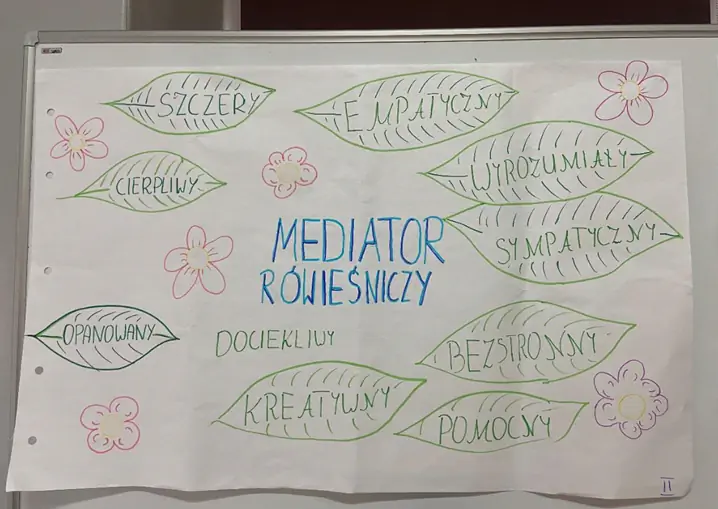 SZCZERY
EMPATYCZNY
CIERPLIWY
WYROZUMIAŁY
SYMPATYCZNY
MEDIATOR
RÓWIEŚNICZY
OPANOWANY
DOCIEKLIWY
BEZSTRONNY
KREATYWNY
POMOCNY
II